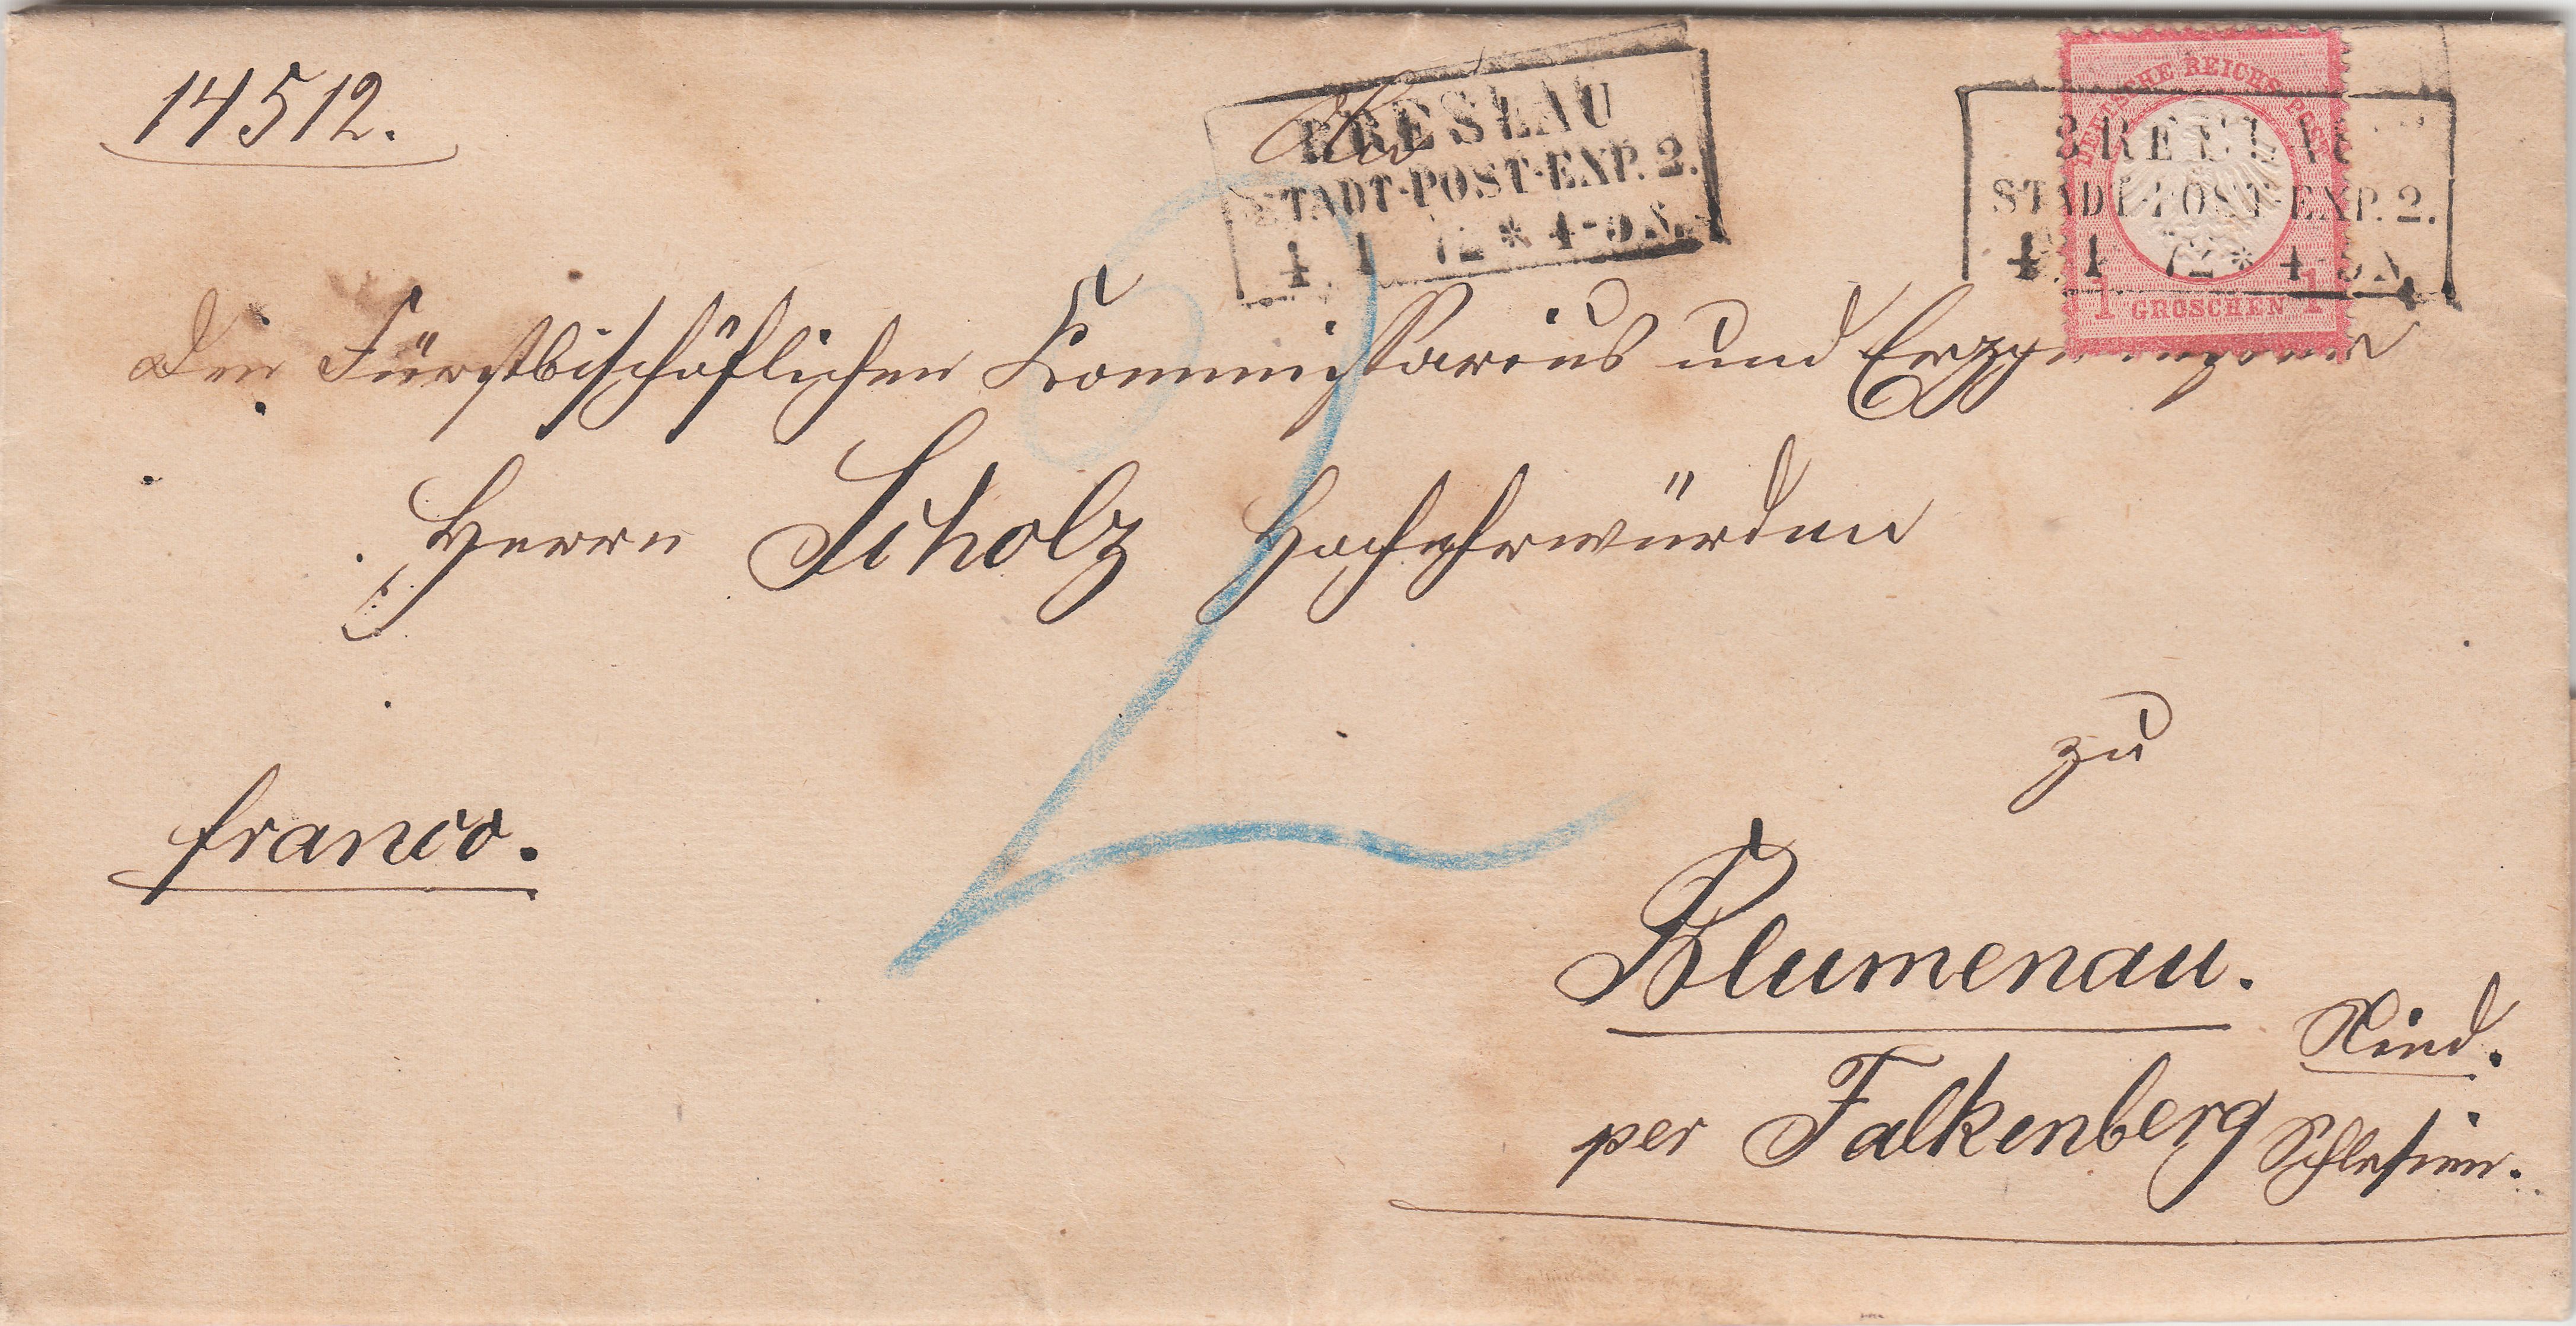 14512.
An
BRESLAU
STADT-POST-EXP. 2.
4 1 72 * 4-5 N.
DEUTSCHE REICHS-POST
1 GROSCHEN 1
BRESLAU
STADT-POST-EXP. 2.
4 1 72 * 4-5 N.
Den Fürstbischöflichen Commissarius und
Herrn Scholz Hochehrwürden
2
zu
franco.
Blumenau.
per Falkenberg Schlesien.